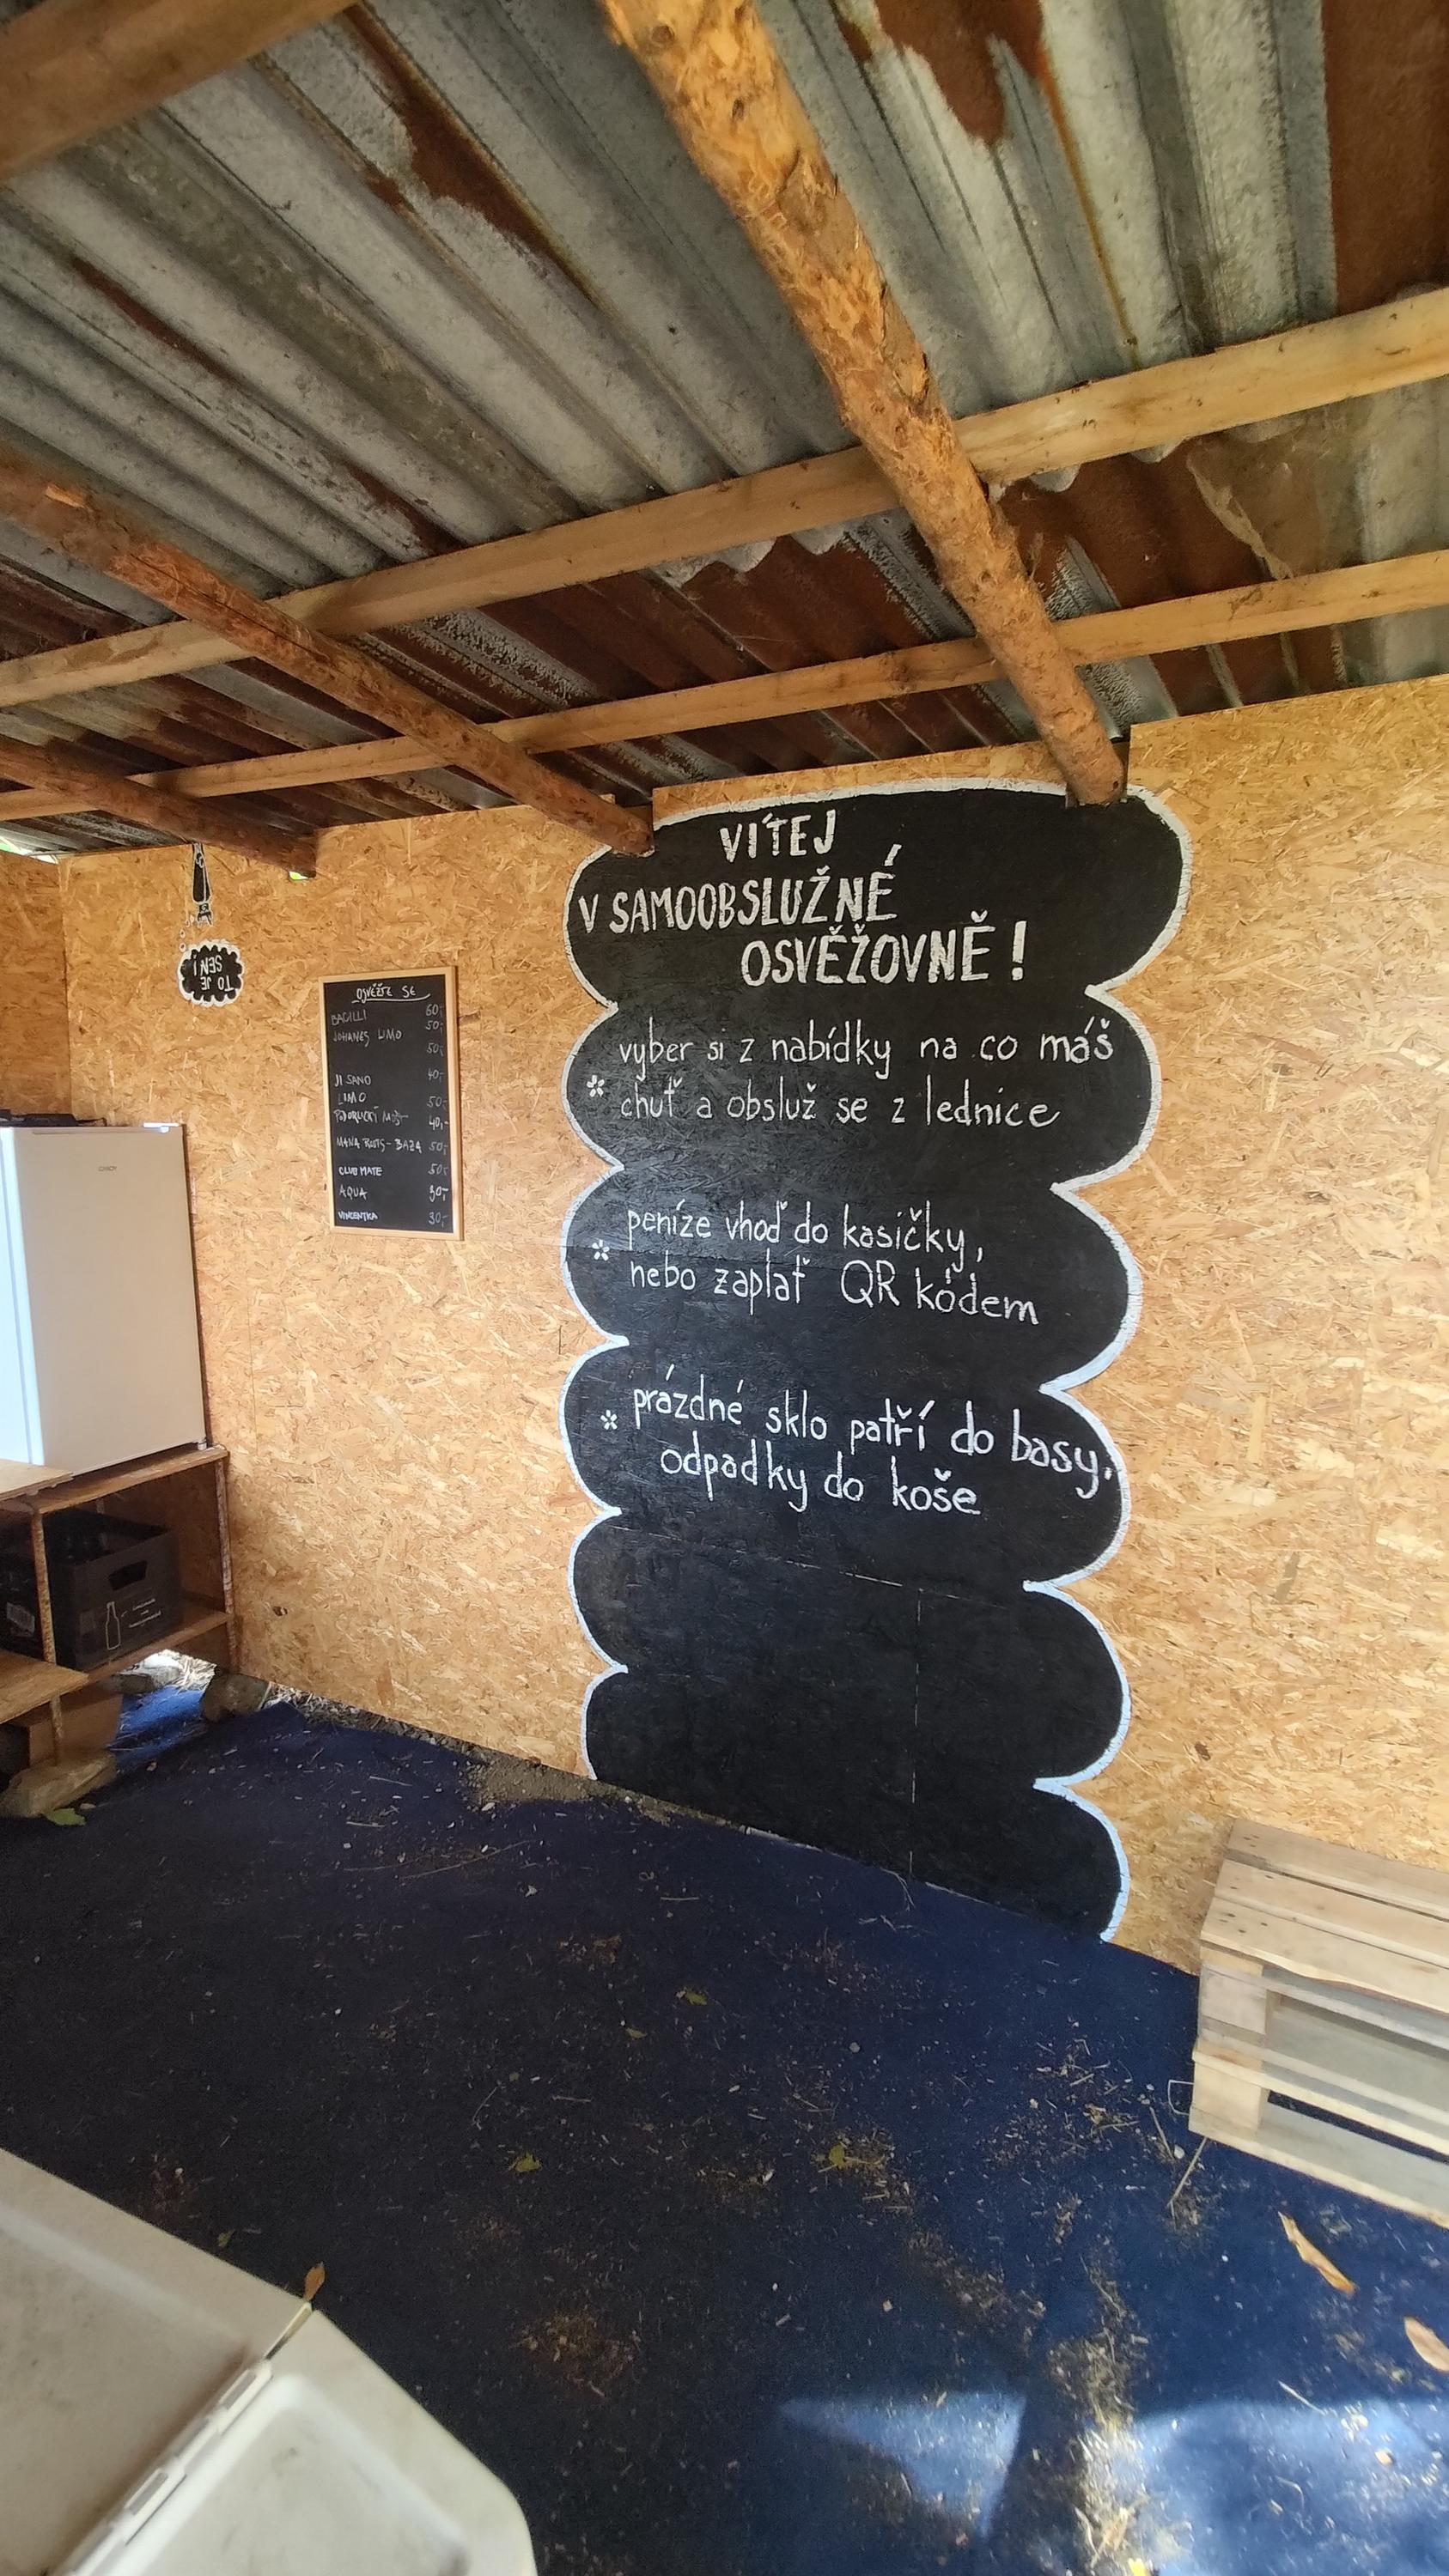 VÍTEJ
V SAMOOBSLUŽNÉ
OSVĚŽOVNĚ!
* vyber si z nabídky na co máš
chuť a obsluž se z lednice
* peníze vhoď do kasičky,
nebo zaplať QR kódem
* prázdné sklo patří do basy.
odpadky do koše
TO JE
SEN!
OSVĚŽTE SE
BACILLI 60,-
JOHANES LIMO 50,-
50,-
JISANO 40,-
LIMO 50,-
PODORLICKÝ 40,-
MANA ROOTS - BAZA 50,-
CLUB MATE 50,-
AQUA 30,-
VINCENTKA 30,-